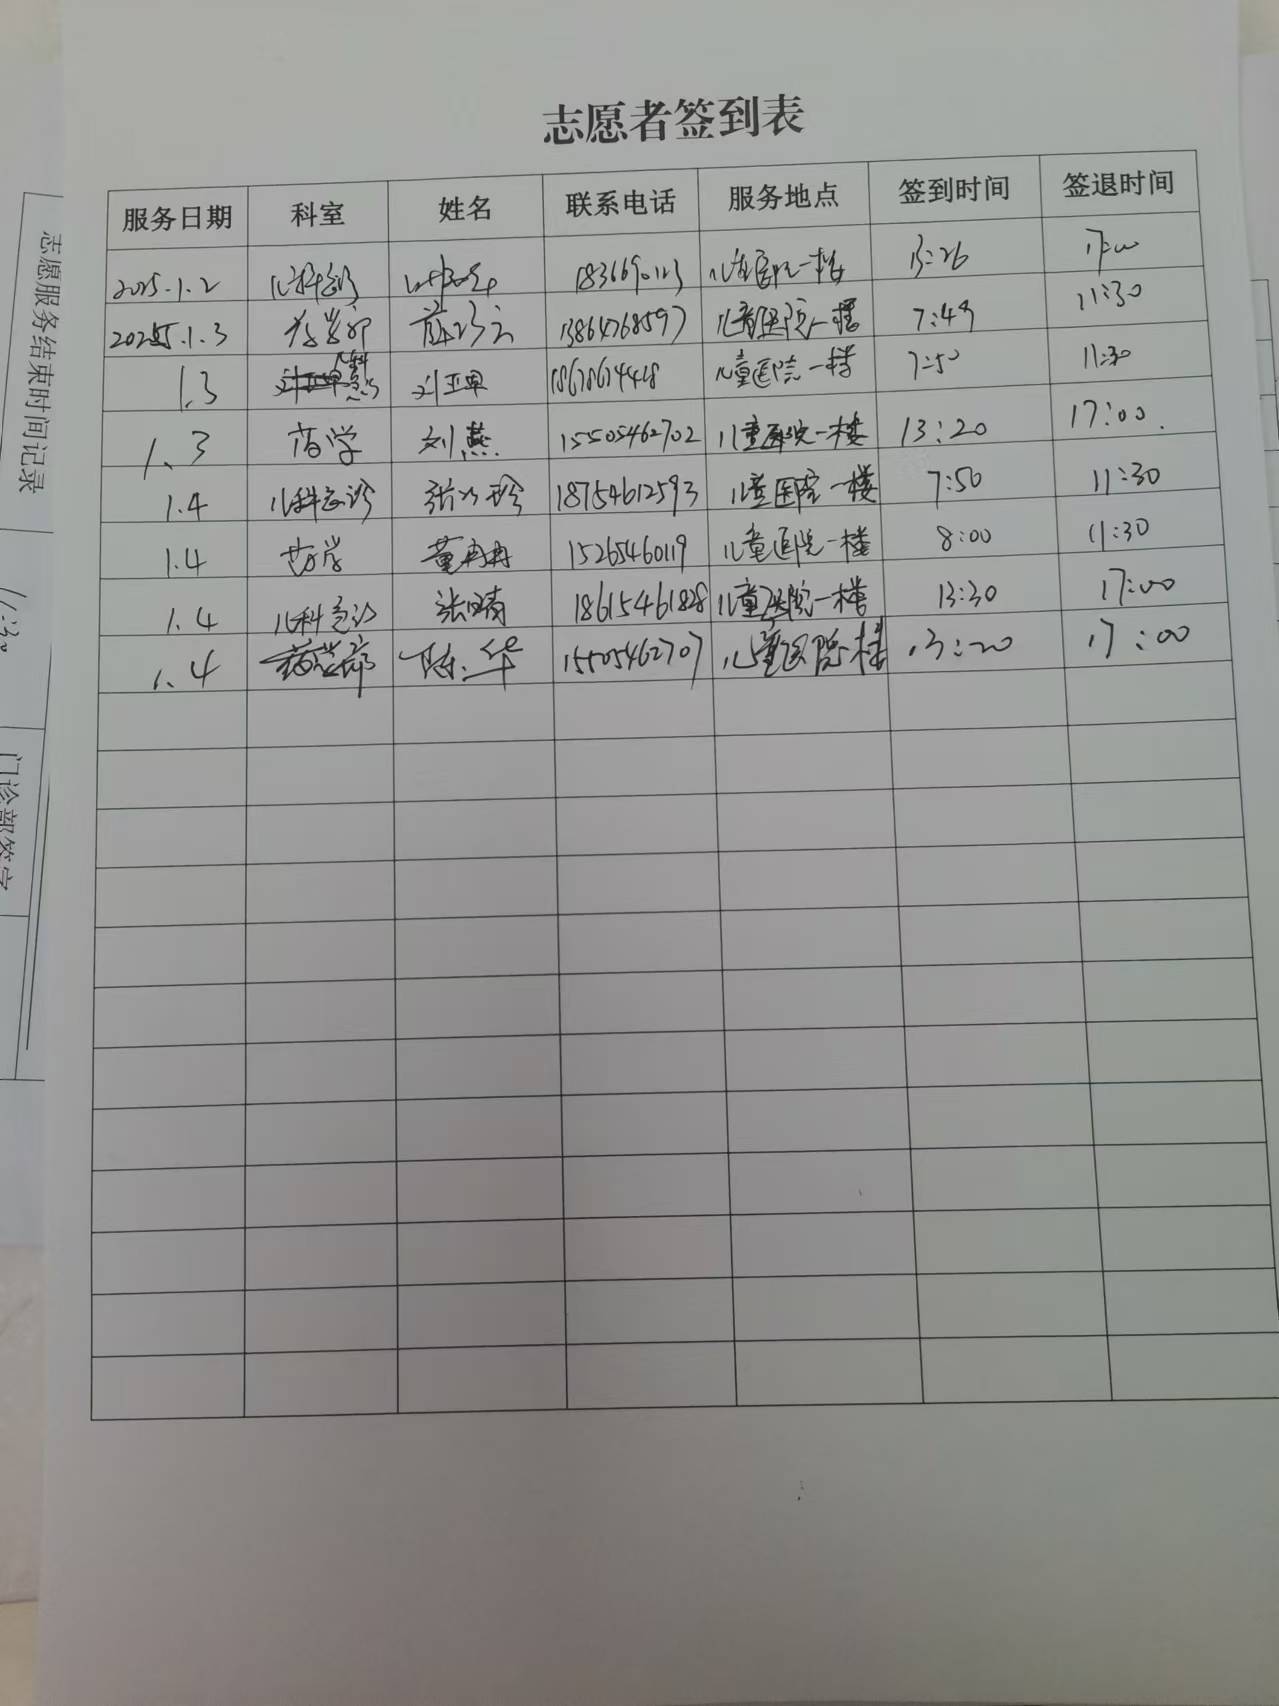 志愿者签到表
服务日期 科室 姓名 联系电话 服务地点 签到时间 签退时间
2025.1.2 儿科急诊 儿童医院一楼 13:26 17:00
2025.1.3 药学部 13864768597 儿童医院一楼 7:49 11:30
1.3 儿科急 刘卫卑 儿童医院一楼 7:50 11:30
1.3 药学 刘燕 15505462702 儿童医院一楼 13:20 17:00
1.4 儿科急诊 18754612593 儿童医院一楼 7:50 11:30
1.4 药学 董冉冉 15265460119 儿童医院一楼 8:00 11:30
1.4 儿科急诊 张晴 18615461828 儿童医院一楼 13:30 17:00
1.4 药学部 陈华 15505462707 儿童医院一楼 13:20 17:00
志愿服务结束时间记录
门诊部签字